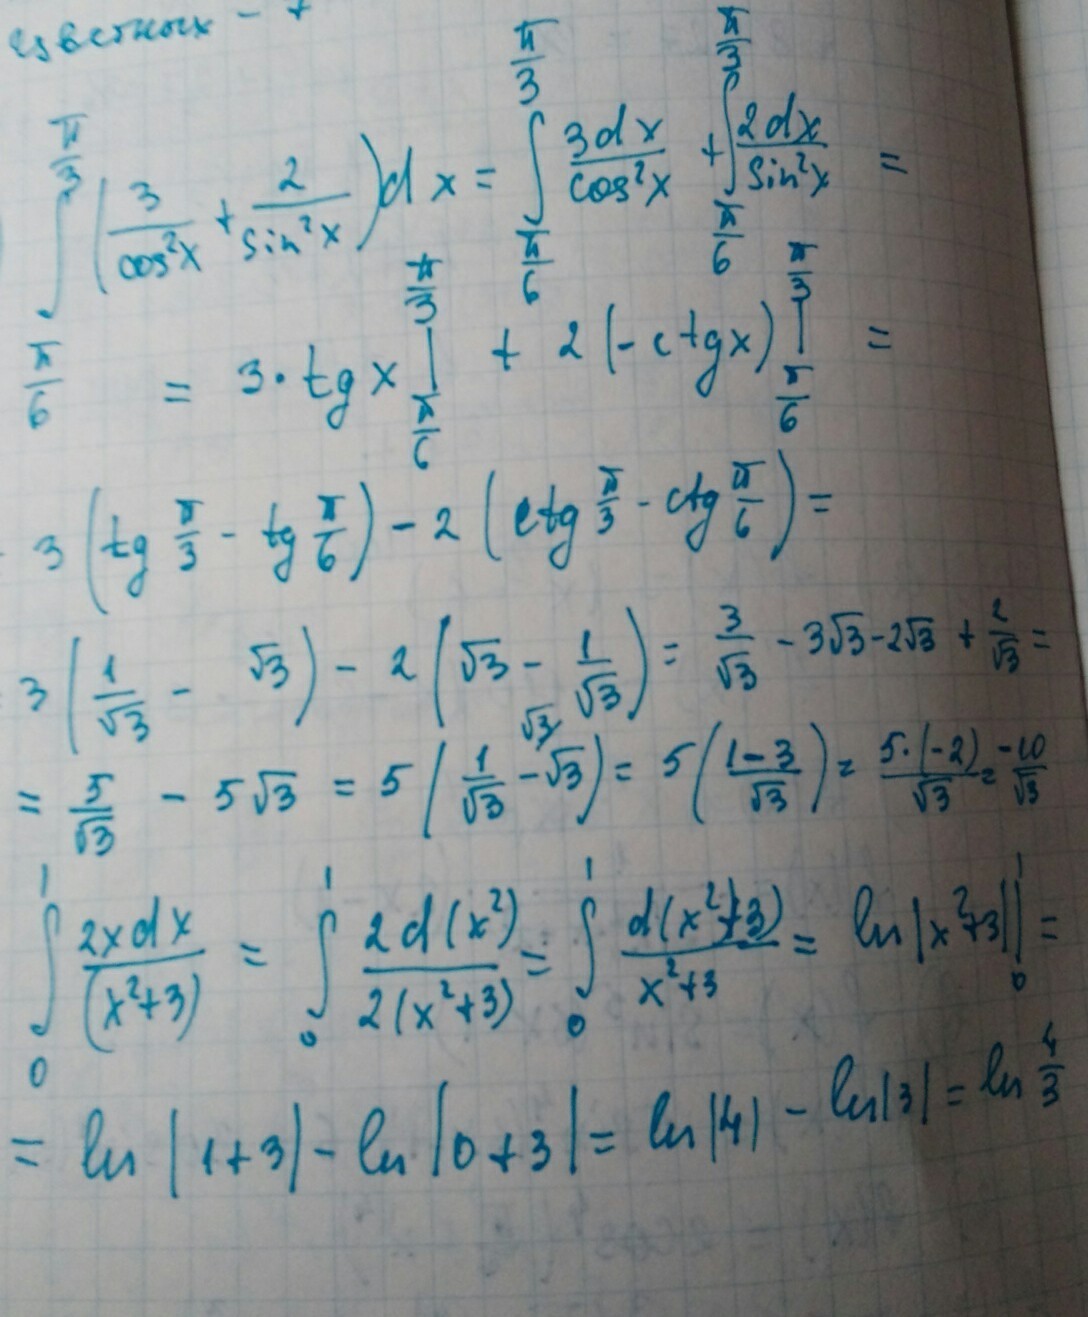 цветных -
∫_{π/6}^{π/3} (3/cos²x + 2/sin²x) dx = ∫_{π/6}^{π/3} 3dx/cos²x + ∫_{π/6}^{π/3} 2dx/sin²x =
= 3·tg x |_{π/6}^{π/3} + 2(-ctgx) |_{π/6}^{π/3} =
3 (tg π/3 - tg π/6) - 2 (ctg π/3 - ctg π/6) =
3 (1/√3 - √3) - 2 (√3 - 1/√3) = 3/√3 - 3√3 - 2√3 + 2/√3 =
= 5/√3 - 5√3 = 5 (1/√3 - √3) = 5 (1-3/√3) = 5·(-2)/√3 = -10/√3
∫_0^1 2xdx/(x²+3) = ∫_0^1 2d(x²)/2(x²+3) = ∫_0^1 d(x²+3)/x²+3 = ln|x²+3| |_0^1 =
= ln|1+3| - ln|0+3| = ln|4| - ln|3| = ln 4/3